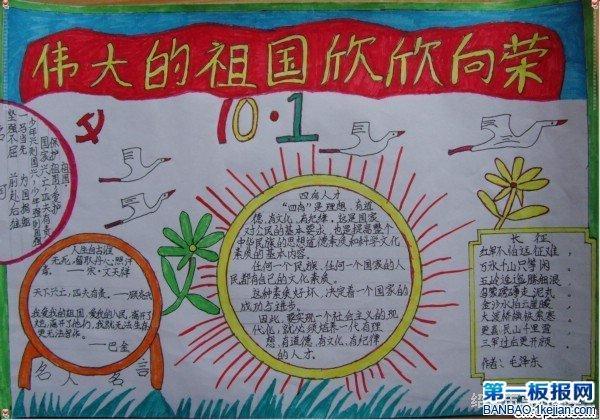 伟大的祖国欣欣向荣
10·1
一马当先 为国捐躯
坚强不屈 前赴后继
人生自古谁
无死,留取丹心照汗
青。——宋·文天祥
天下兴亡,匹夫有责。——顾炎武
我爱我的祖国,爱我的人民,离开了
她,离开了他们,我就无法生存,
更无法写作。
——巴金
名人名言
四有人才
“四有”是理想、有道
德、有文化、有纪律,这是国家
对公民的基本要求,也是提高整个
中华民族的思想道德素质和科学文化
素质的基本内容。
任何一个民族、任何一个国家的人
民都有自己的文化素质。
这种素质好坏,决定着一个国家的
成功与进步。
因此,要实现一个社会主义的现
代化,就必须培养一代有理
想、有道德、有文化、有纪律
的人才。
长征
红军不怕远征难,
万水千山只等闲
五岭逶迤腾细浪
乌蒙磅礴走泥丸
金沙水拍云崖暖
大渡桥横铁索寒
更喜岷山千里雪
三军过后尽开颜
作者:毛泽东
第一板报网
BANBAO.1kejian.com